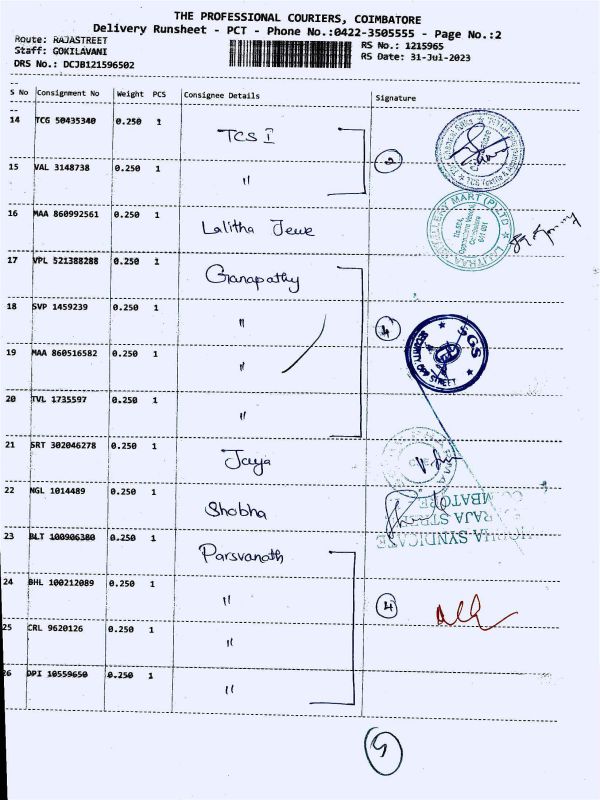 THE PROFESSIONAL COURIERS, COIMBATORE
Delivery Runsheet - PCT - Phone No.:0422-3505555 - Page No.:2
Route: RAJASTREET
Staff: GOKILAVANI
DRS No.: DCJB121596502
RS No.: 1215965
RS Date: 31-Jul-2023
S No Consignment No Weight PCS Consignee Details Signature
14 TCG 50435340 0.250 1 TCS I
2
15 VAL 3148738 0.250 1 "
16 MAA 860992561 0.250 1 Lalitha Jewe
17 VPL 521388288 0.250 1 Ganapathy
18 SVP 1459239 0.250 1 "
4
19 MAA 860516582 0.250 1 "
20 TVL 1735597 0.250 1 "
21 SRT 302046278 0.250 1 Jaya
22 NGL 1014489 0.250 1 Shobha
23 BLT 100906380 0.250 1 Parsvanath
24 BHL 100212089 0.250 1 "
4
25 CRL 9620126 0.250 1 "
26 DPI 10559650 0.250 1 "
SGS
SECURITY
STREET
SYNDICATE
RAJA STREET